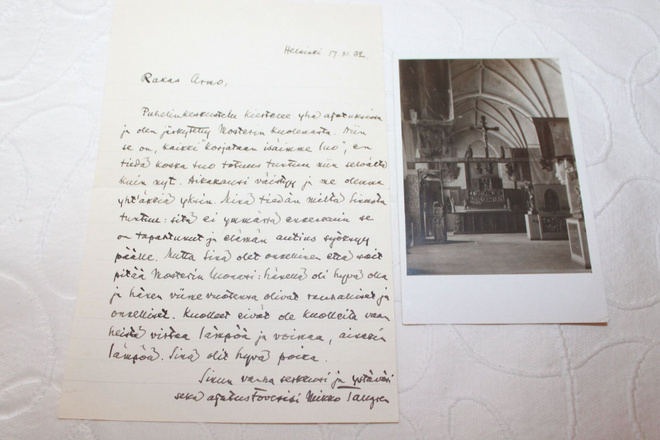 Helsinki 17.XI.32
Rakas Arno,
Puhelinkeskustelu kiertelee yhä ajatuksissa
ja olen järkytetty Mosterin kuolemasta. Niin
se on, kaikki "korjataan isäimme luo", en
tiedä koska tuo totuus tuntuu niin selvältä
kuin nyt. Aikakausi väistyy ja me olemme
yht'äkkiä yksin. Minä tiedän miltä Sinusta
tuntuu: sitä ei ymmärrä ennenkuin se
on tapahtunut ja elämän
päälle. Mutta Sinä olet onnellinen että sait
pitää Mosterin luonasi: hänellä oli hyvä olla
ja hänen viime vuotensa olivat rauhalliset ja
onnelliset. Kuolleet eivät ole kuolleita vaan
heistä virtaa lämpöä ja voimaa, ainakin
lämpöä. Sinä olit hyvä poika.
Sinun vanha serkkusi ja ystäväsi
sekä ajatustoverisi Mikko